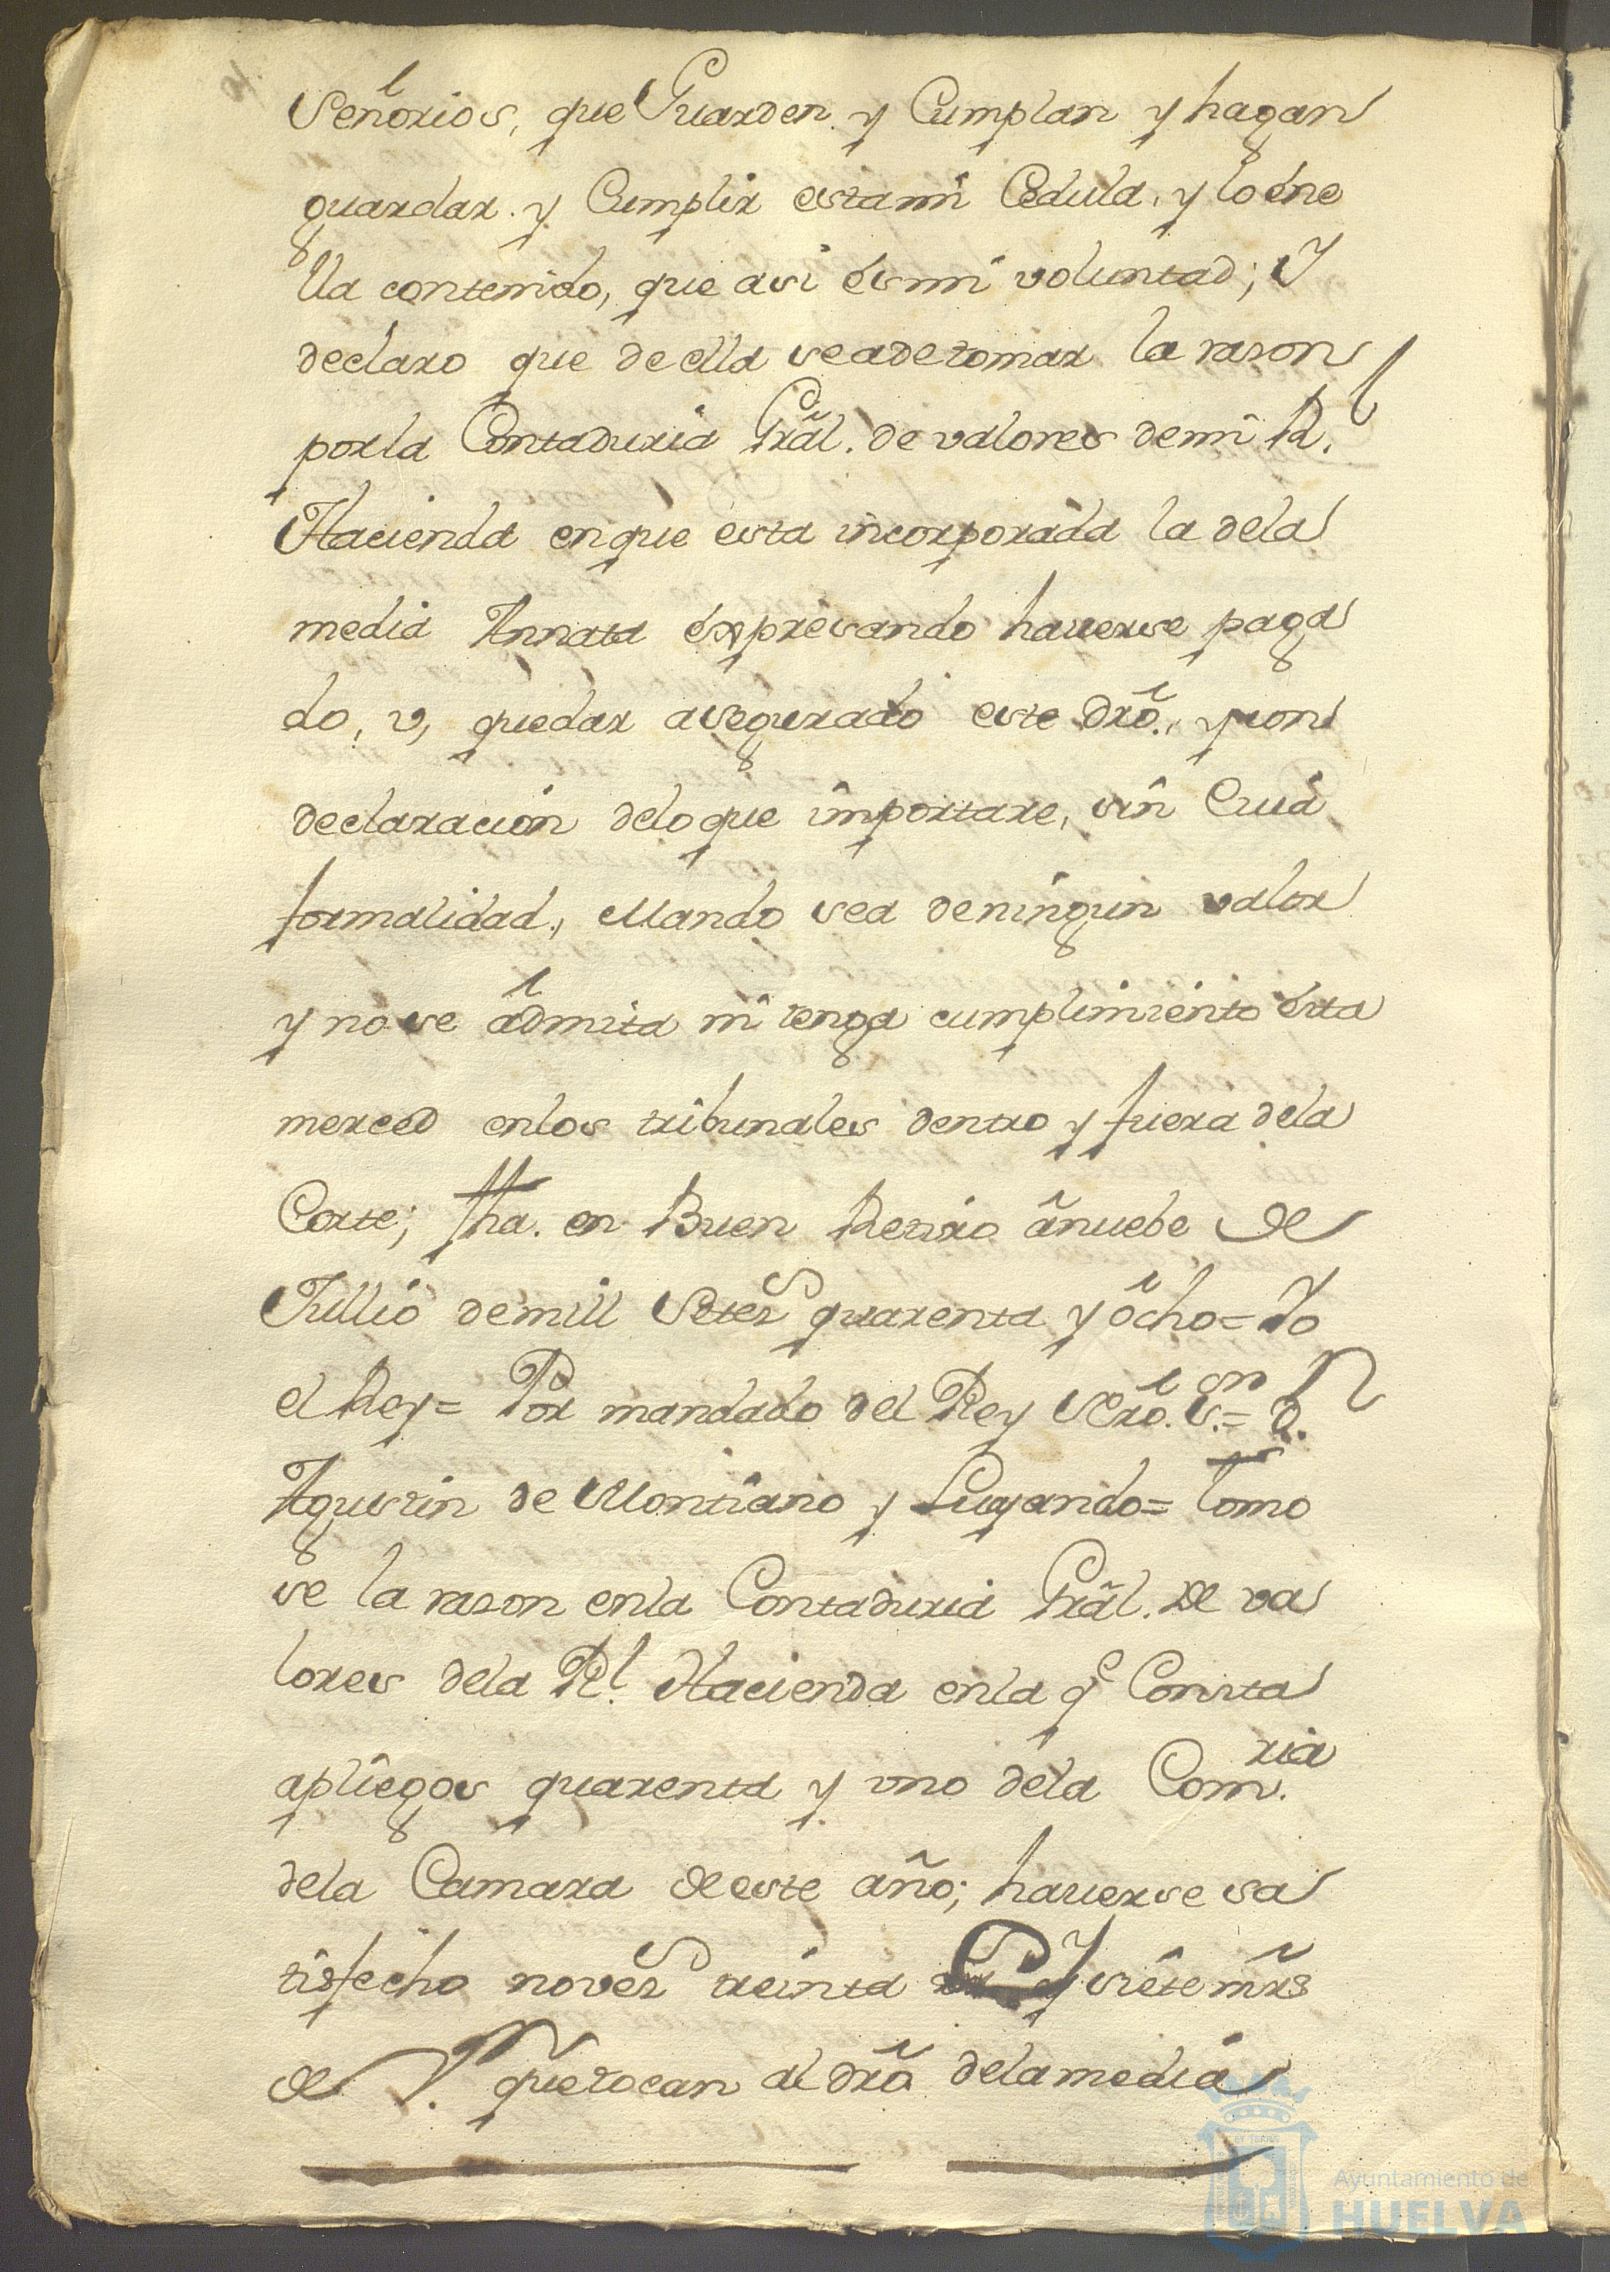 Señorios, que Guarden y Cumplan y hagan
guardar y Cumplir esta mi Cedula, y lo éne
lla contenido, que asi és mi voluntad; Y
declaro que de ella se ade tomar la rason
por la Contaduria Grãl. de valores de mi R.l
Hacienda en que esta incorporada la de la
media Annata éxpresando hauerse paga
do, v, quedar asegurado este Drõ., y con
declaración delo que importare, sin Cuia
formalidad, Mando sea de ningun valor
y no se admita ni tenga cumplimiento ésta
merced en los tribunales dentro y fuera dela
Corte; fha. en Buen Retiro ã nuebe de
Jullio de mill Setez.os quarenta y õcho = Yo
el Rey = Por mandado del Rey Ñro. S.or = D.n
Agustin de Montiano y Luyando = Tomo
se la rason en la Contaduria Grãl. de va
lores dela Rl. Hacienda en la q.e Consta
a pliegos quarenta y uno dela Com.ria
dela Camara de este año; hauerse sa
tisfecho novez.os treinta y siete mr̃s
de V.n que tocan al drõ dela media
Ayuntamiento de
HUELVA